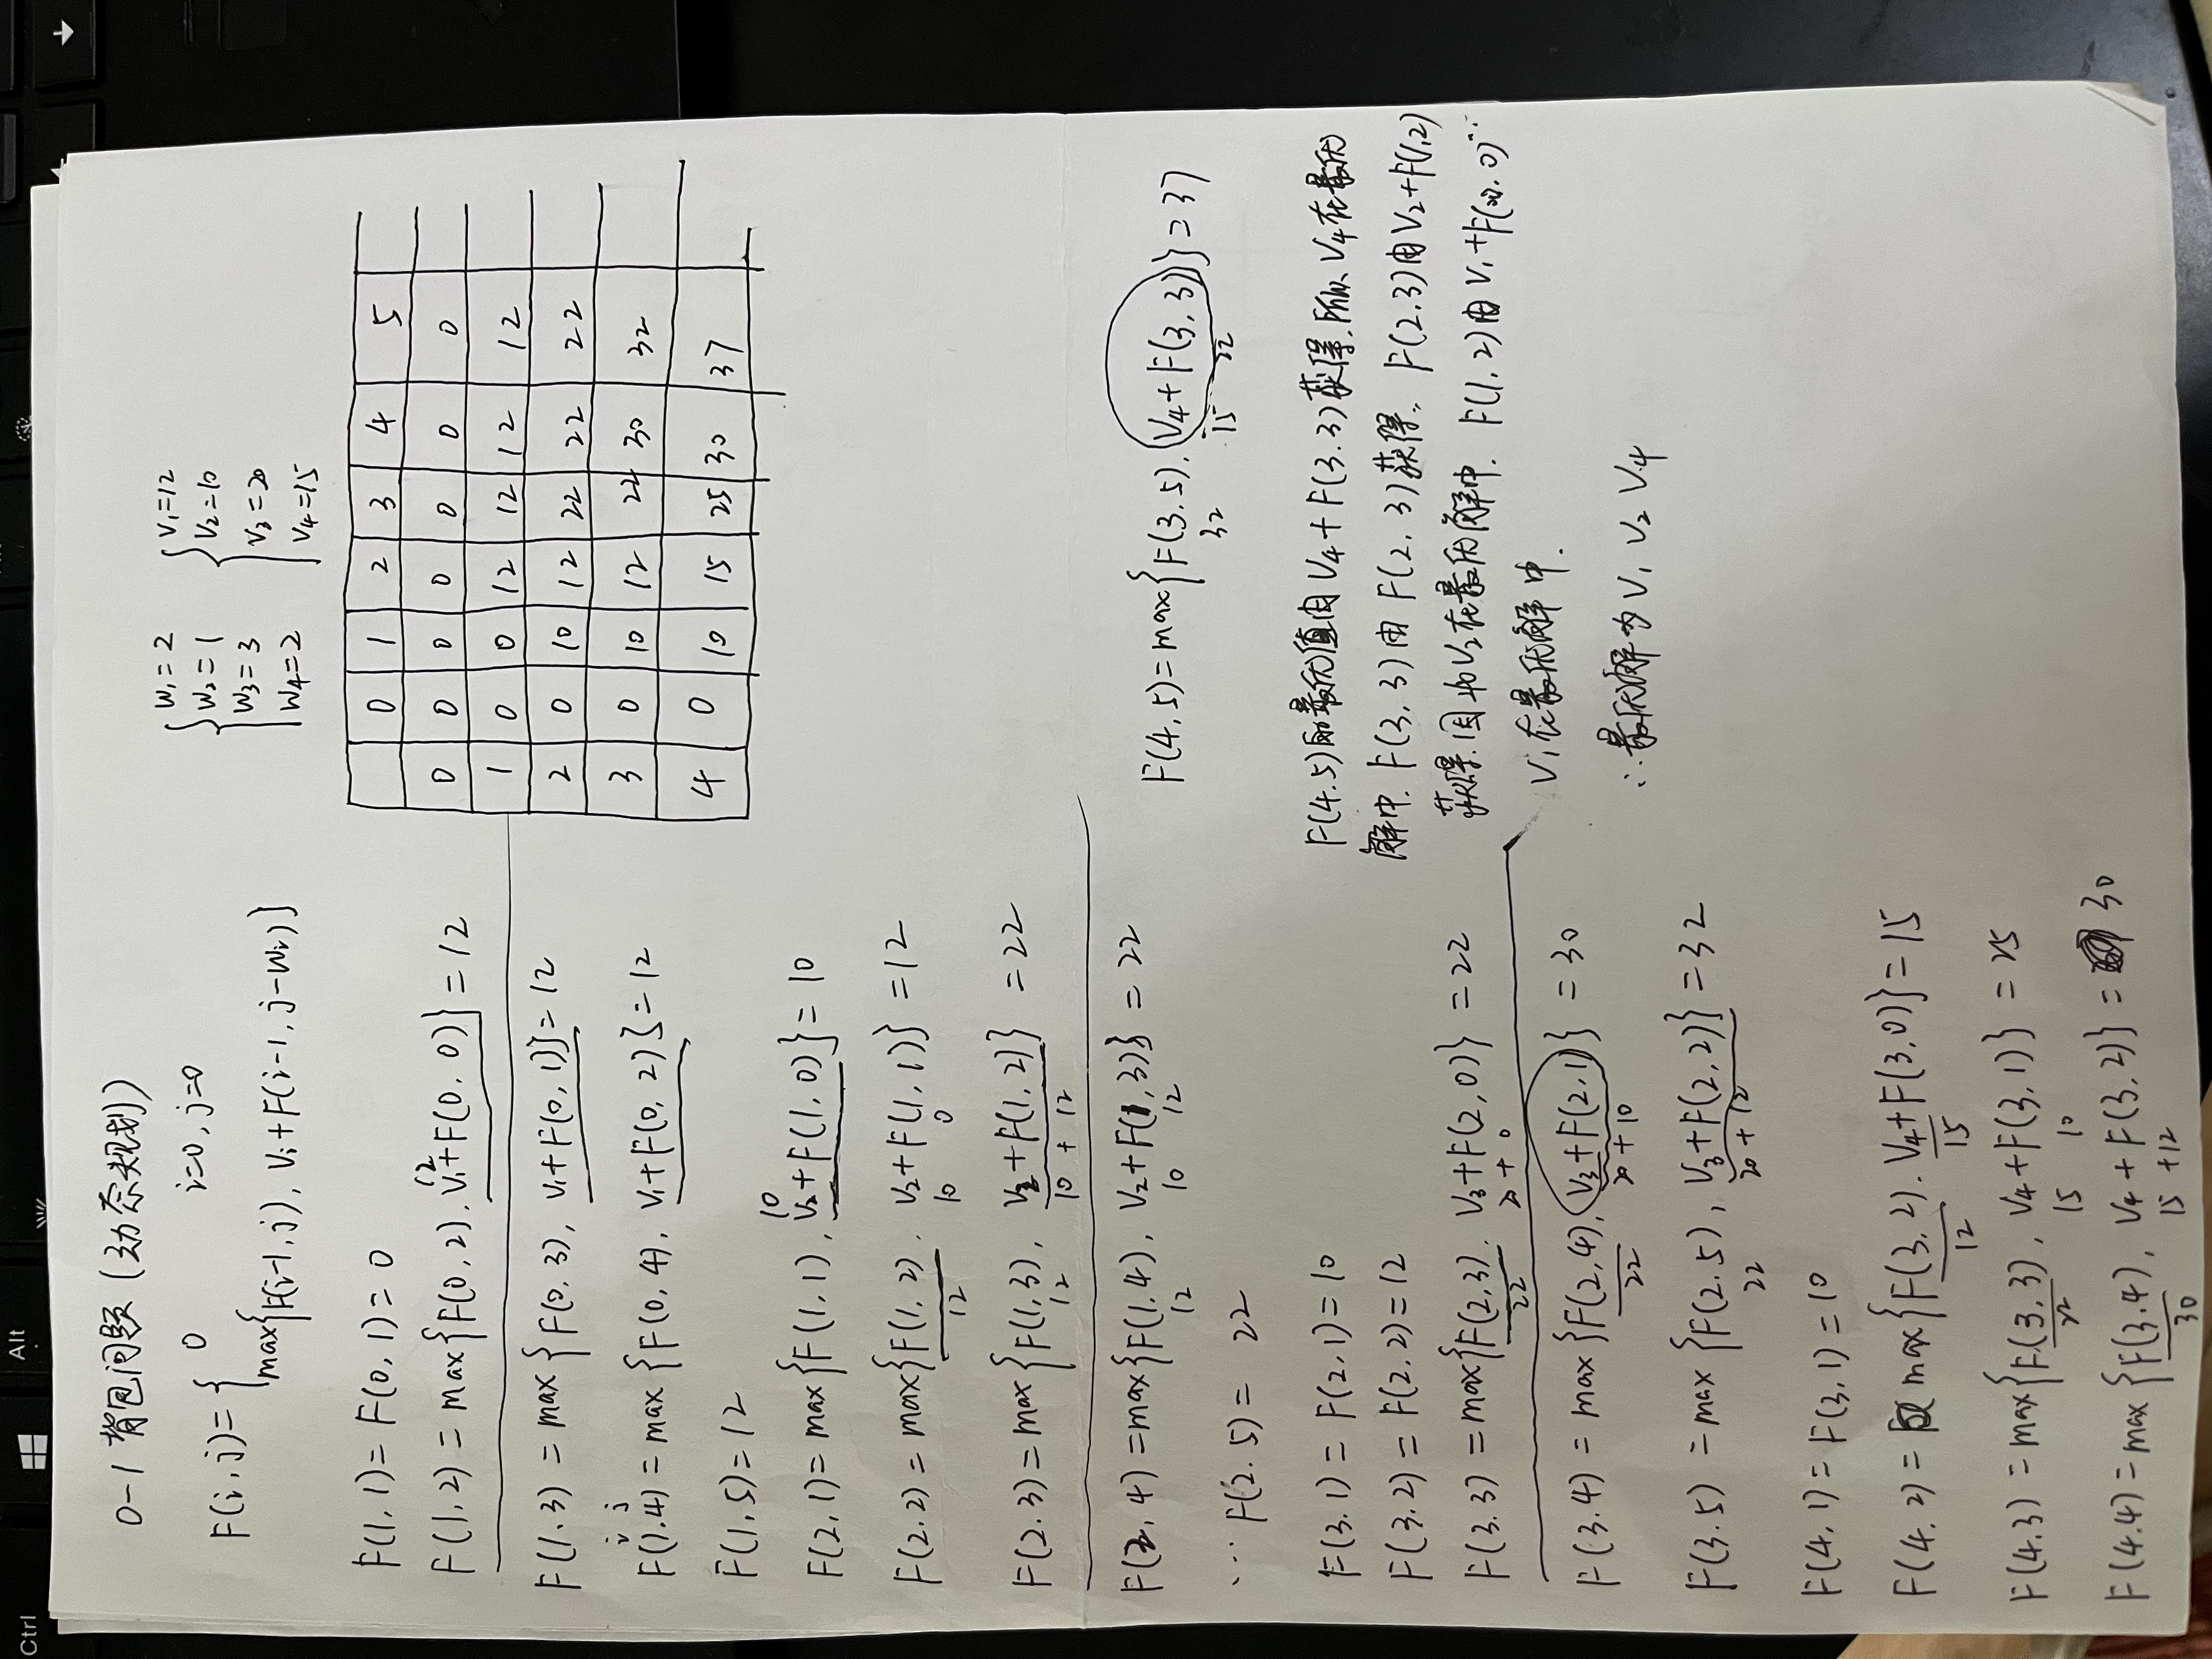 Ctrl
Alt
0-1 背包问题 (动态规划)
F(i, j) = { 0 i=0, j=0
max{F(i-1, j), Vi + F(i-1, j-Wi)}
W1 = 2 V1=12
W2 = 1 V2=10
W3 = 3 V3=20
W4=2 V4=15
F(1, 1) = F(0, 1) = 0
12
F(1, 2) = max{F(0, 2). V1+F(0, 0)} = 12
F(1.3) = max{F(0, 3), V1+F(0, 1)} = 12
i j
F(1.4) = max{F(0, 4), V1+F(0, 2)} = 12
F(1, 5) = 12
10
F(2, 1) = max{F(1, 1), V2+F(1, 0)} = 10
F(2.2) = max{F(1, 2). V2+F(1, 1)} = 12
12 10 0
F(2.3) = max{F(1,3), V2+F(1,2)} = 22
12 10 + 12
F(2, 4) = max{F(1.4), V2+F(1,3)} = 22
12 10 12
... F(2.5) = 22
F(3.1) = F(2,1) = 10
F(3.2) = F(2.2) = 12
F(3.3) = max{F(2,3). V3+F(2,0)} = 22
22 20 + 0
F(3.4) = max{F(2,4), V3+F(2,1)} = 30
22 20 + 10
F(3.5) = max{F(2.5), V3+F(2,2)} = 32
22 20 + 12
F(4, 1) = F(3, 1) = 10
F(4.2) = max{F(3, 2). V4+F(3,0)} = 15
12 15
F(4.3) = max{F(3, 3), V4+F(3,1)} = 25
22 15 10
F(4.4) = max{F(3.4), V4+F(3,2)} = 30
30 15 +12
0 1 2 3 4 5
0 0 0 0 0 0 0
1 0 0 12 12 12 12
2 0 10 12 22 22 22
3 0 10 12 22 30 32
4 0 10 15 25 30 37
F(4,5) = max{F(3.5). V4+F(3,3)} = 37
32 15 22
F(4.5)的最优值由 V4+F(3.3)获得,所以 V4在最优
解中. F(3, 3)由 F(2, 3)获得. F(2.3)由V2+F(1,2)
获得.因此V2在最优解中. F(1, 2)由 V1+F(0. 0)...
V1在最优解中.
∴最优解为V1 V2 V4